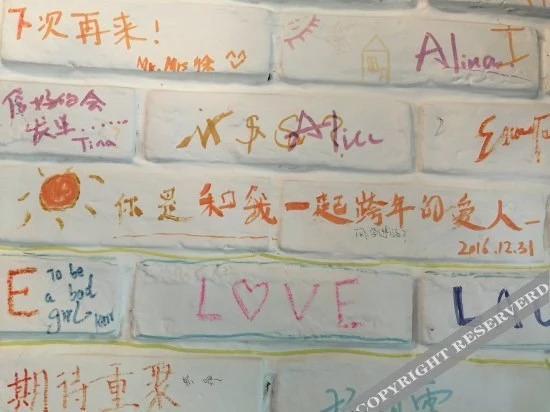 下次再来!
Mr. Mrs
Alina
信好的会
发生......
Tina
N & S
Alice
2
你是和我一起跨年的爱人
2016.12.31
E
To be
a bad
girl
LOVE
期待重聚
COPYRIGHT RESERVED